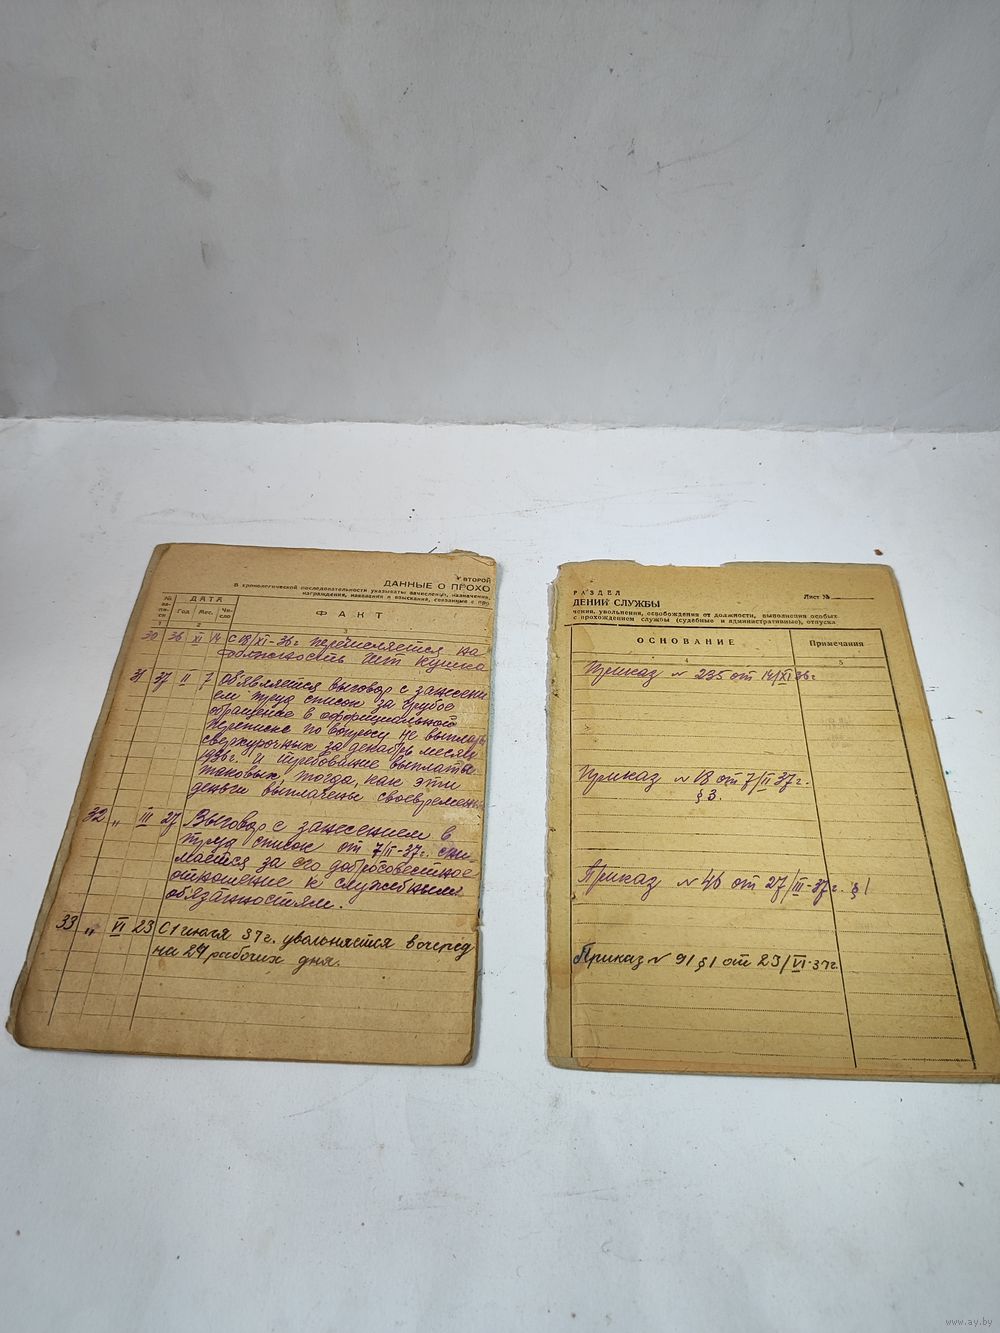 ВТОРОЙ
ДАННЫЕ О ПРОХО
В хронологической последовательности указывать зачисления, назначения,
награждения, наказания и взыскания, связанные с про
№ за-пи-си
ДАТА
Год Мес. Чи-сло
ФАКТ
1 2 3
30 36 XI 14 С 18/XI-36г перечисляется на
должность
31 37 II 7 Объявляется выговор с занесени
ем труд список за грубое
обращение в официальной
переписке по вопросу не выплаты
сверхурочных за декабрь месяц
1936г. и требование выплаты
таковых, тогда, как эти
деньги выплачены своевременно
32 „ III 27 Выговор с занесением в
труд список от 7/II-37г. сни
мается за его добросовестное
отношение к служебным
обязанностям.
33 „ VI 23 С 1 июля 37г. увольняется в очеред
на 24 рабочих дня.
РАЗДЕЛ
Лист №
ДЕНИИ СЛУЖБЫ
чения, увольнения, освобождения от должности, выполнения особых
с прохождением службы (судебные и административные), отпуска
ОСНОВАНИЕ Примечания
4 5
Приказ № 235 от 14/XI 36г
Приказ № 18 от 7/II 37г.
§ 3.
Приказ № 46 от 27/III-37г. § 1
Приказ № 91 § 1 от 23/VI-37г.
www.ay.by